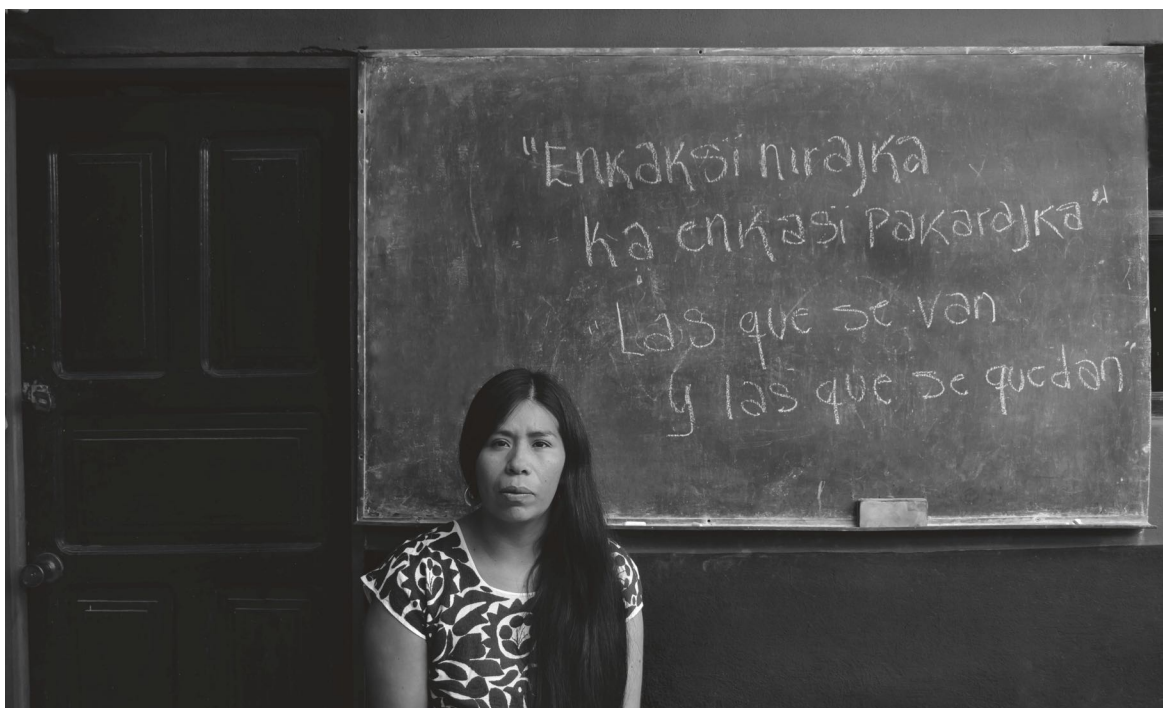 "Enkaksï nirajka
ka enkasï pakarajka"
"Las que se van
y las que se quedan"